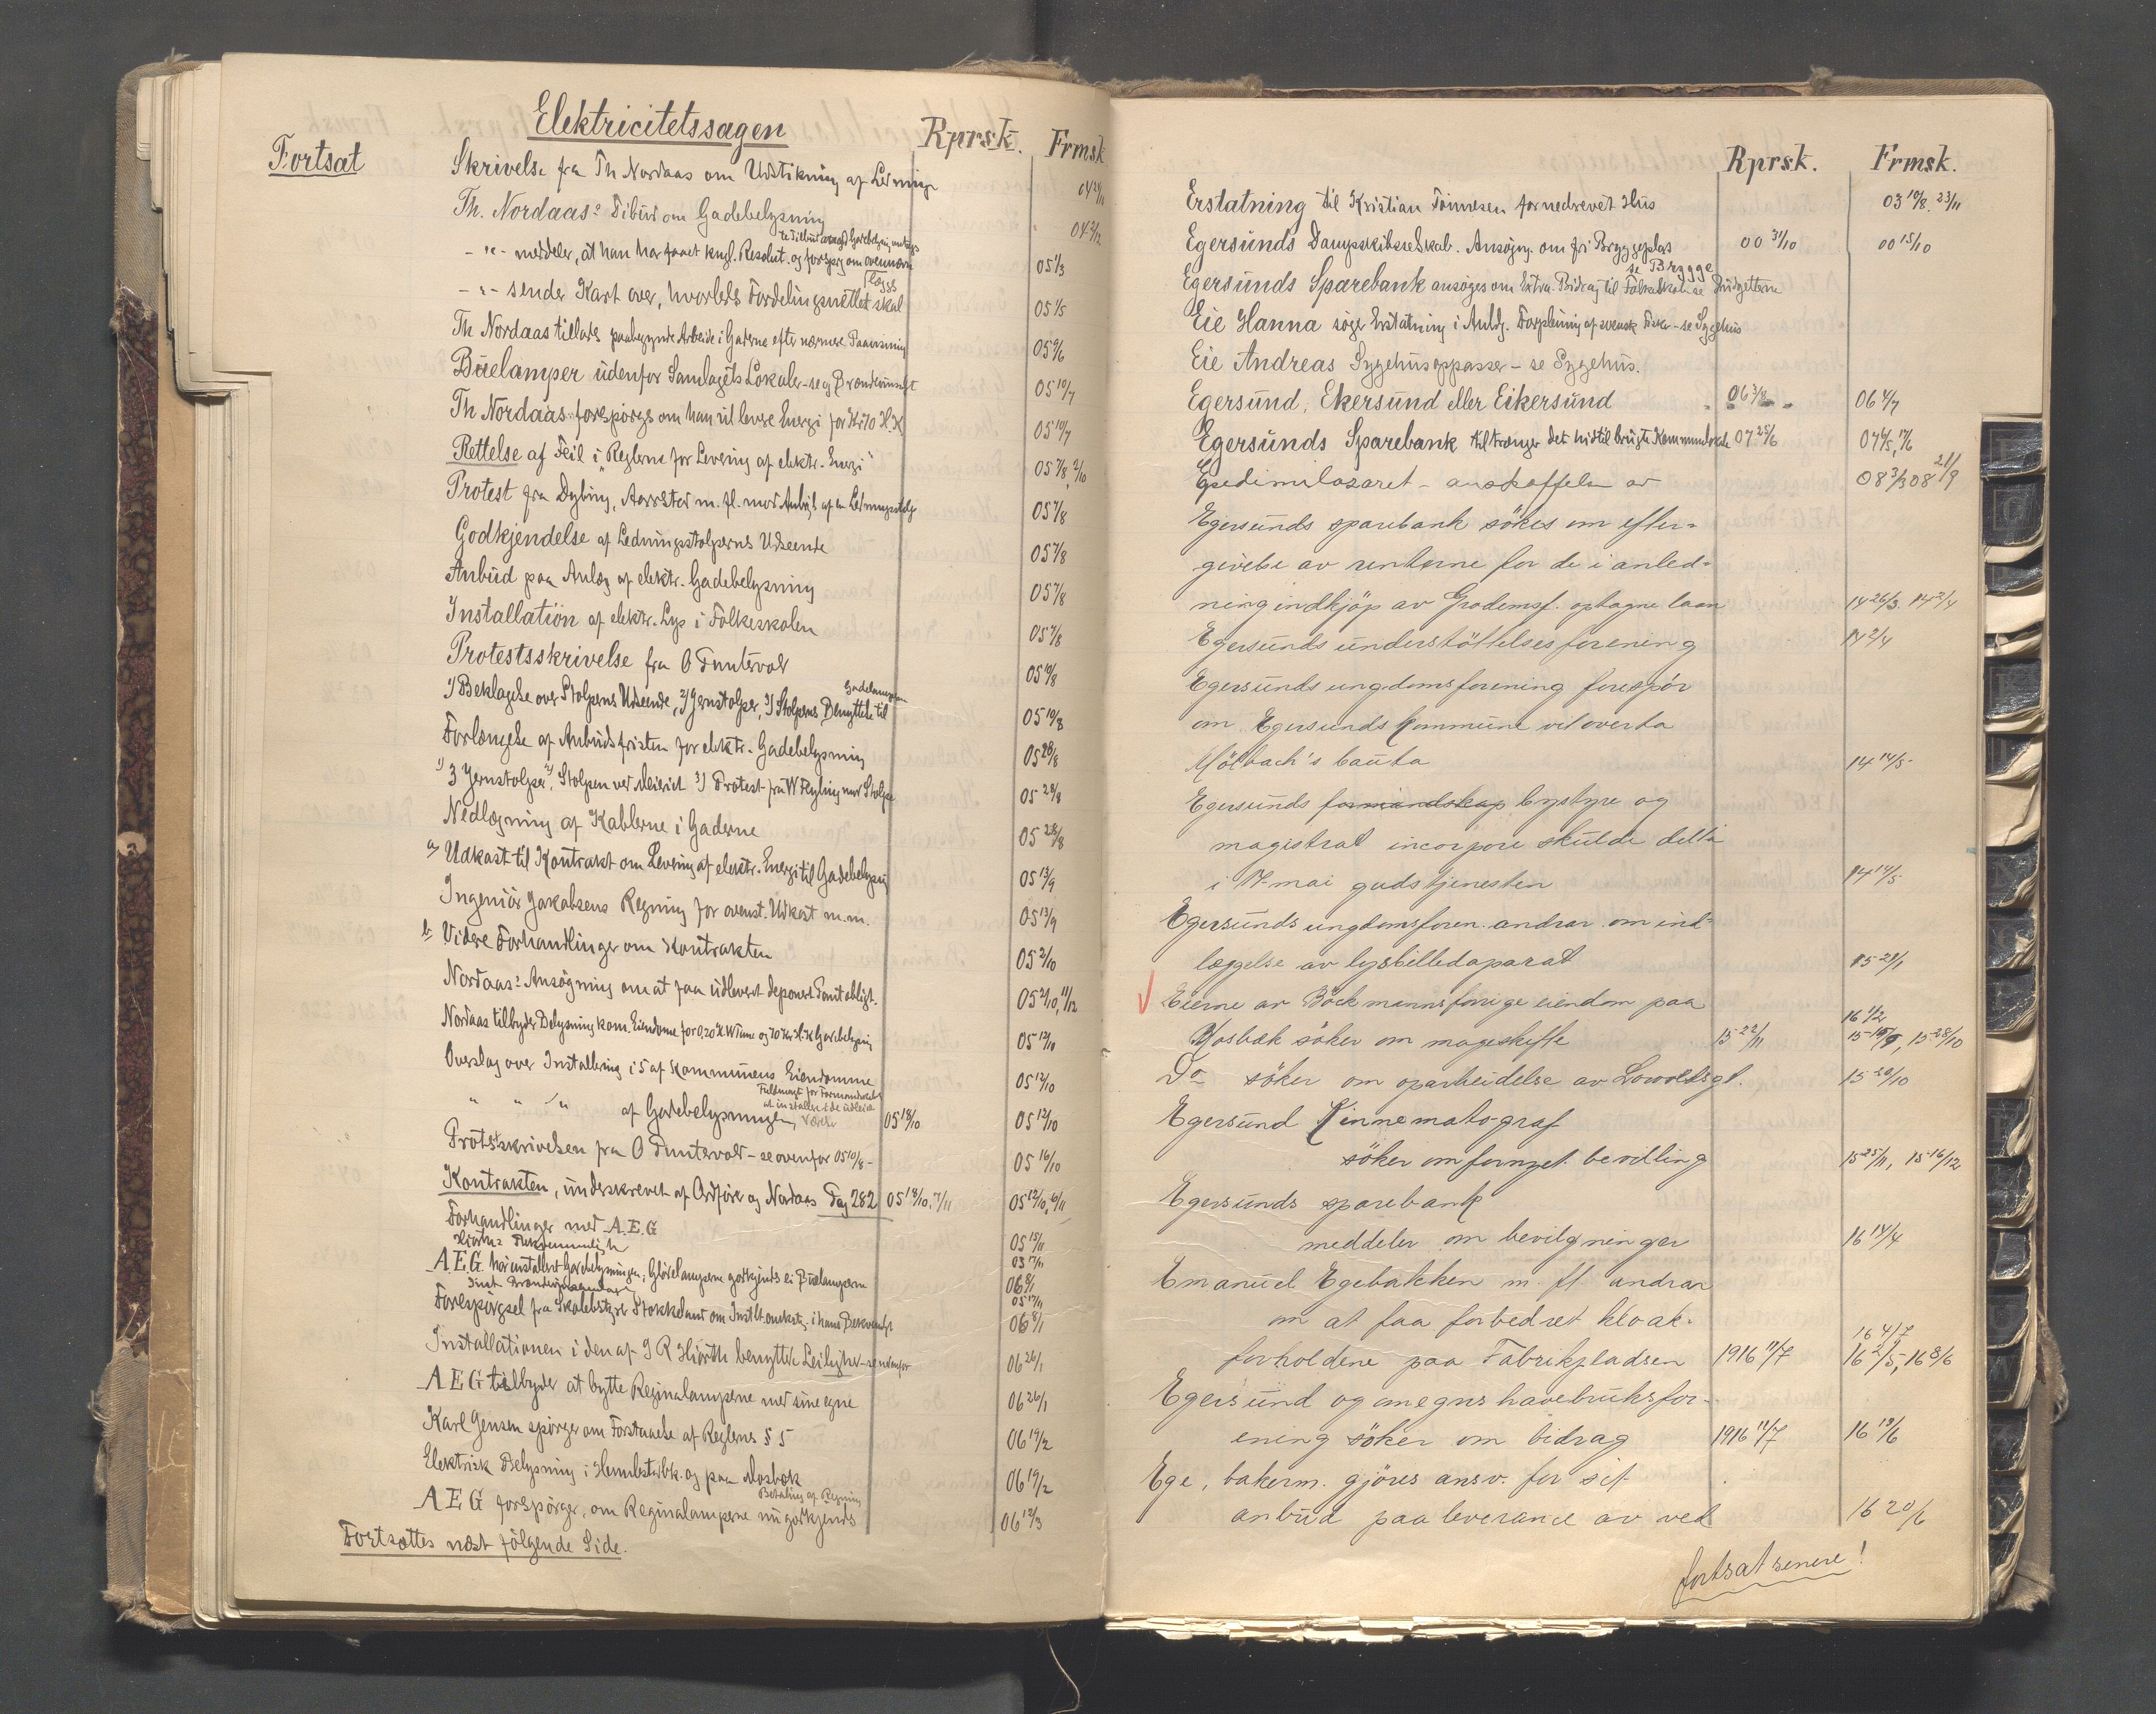 Elektricitetssagen
Rprsk. Frmsk
Fortsat
Skrivelse fra Th Nordaas om Udstikning af Ledninge 04 24/11
Th. Nordaas: Tilbud om Gadebelysning 04 2/12
- " - meddeler, at han har faaet kngl. Resolut. og forspørg om ovennævn 05 1/3
te Tilbud Gadebelysning modtages
- " - sender Kart over, hvorleds Fordelingsnettet skal 05 1/5
lægges
Th Nordaas tillades paabegynde Arbeide i Gaderne efter nærmere Paavisning 05 9/6
Buelamper udenfor Samlagets Lokaler - se og Brændevinsselsk 05 10/7
Th Nordaas forespørges om han vil levere Energi for Kr 70 H.K 05 10/7
Rettelse af Feil i "Reglerne for Levering af elektr. Energi" 05 7/8, 2/10
Protest fra Dybing, Aarstad m. fl. mod Anbrgls af en Ledningsstolpe 05 7/8
Godkjendelse af Ledningsstolpernes Udseende 05 7/8
Anbud paa Anlæg af elektr. Gadebelysning 05 7/8
Installation af elektr. Lys i Folkeskolen 05 7/8
Protestsskrivelse fra O Tuntvold 05 10/8
1) Beklagelse over Stolpernes Udseende, 2) Jernstolper, 3) Stolpernes Benyttelse til 05 10/8
Gadelamper
Forlængelse af Anbudsfristen for elektr. Gadebelysning 05 28/8
1) 3 Jernstolper, 2) Stolpen ved Meieriet 3) Protest fra W Feyling mod Stolpe 05 28/8
Nedlægning af Kablerne i Gaderne 05 28/8
a) Udkast til Kontrakt om Levering af elektr. Energi til Gadebelysn 05 13/9
Ingeniør Jakobsens Regning for ovenst. Udkast m.m. 05 13/9
b Videre Forhandlinger om Kontrakten 05 2/10
Nordaas: Ansøgning om at faa udleveret deponert Pantobligt. 05 2/10, 11/12
Nordaas tilbyder Belysning kom. Eiendome for 0,20 K W Time og 70 Kr H.K Gadebelysning 05 12/10
Overslag over Installering i 5 af Kommunens Eiendomme 05 12/10
" " " af Gadebelysningen, 05 18/10 05 12/10
Fuldmagt for Formandskabet
Protestskrivelsen fra O Tuntvold - se ovenfor 05 10/8 - 05 16/10
Kontrakten, underskrevet af Ordføre og Nordaas Pag 282 05 18/10, 7/11 05 12/10, 6/11
Forhandlinger med A.E.G 05 15/11
A.E.G. har installert Gadebelysningen, Glødelamperne godkjends ei Buelamperne 06 8/1
Forespørgsel fra Skolebestyrer Stokkeland om Instlt. i hans 06 8/1
Installationen i den af J R Hjorth benyttede Leilighed - se 06 26/1
A E G tilbyder at bytte Reginalamperne med sine egne 06 26/1
Karl Jensen spørger om Forstaaelse af Reglerns § 5 06 19/2
Elektrisk Belysning i og paa Mosbæk 06 19/2
Betaling af Regning
A E G forspørger, om Reginalamperne nu godkjends 06 12/3
Fortsættes næst følgende Side.
Rprsk. Frmsk.
Erstatning til Kristian Tønnesen for nedrevet Hus 03 10/8. 23/11
Egersunds Dampskibsselskab. Ansøgn. om fri Bryggeplas 00 31/10 00 15/10
se Brygge
Egersunds Sparebank ansøges om Extra Bidrag til Folkeskolen se Budgetterne
Eie Hanna søger Erstatning i Anldg. Forpleining af svensk Fisker - se Sygehus
Eie Andreas Sygehusoppasser - se Sygehus.
Egersund, Ekersund eller Eikersund 06 3/8 06 4/7
Egersunds Sparebank tiltrænger det hidtil brugte Kommunelokale 07 25/6 07 4/5, 17/6
Epedimilasaret - anskaffelse av 08 3/3 08 21/9
Egersunds sparebank søkes om efter-
givelse av renterne for de i anled-
ning indkjøp av Grodemsf. optagne laan 14 26/3. 14 2/4
Egersunds understøttelsesforening 14 2/4
Egersunds ungdomsforening forespør
om Egersunds kommune vil overta
Mølbach's bauta 14 14/5
Egersunds formandskap bystyre og
magistrat incorpore skulde delta
i 17-mai gudstjenesten 14 14/5
Egersunds ungdomsforen. andrar om ind-
læggelse av lysbilledaparat 15 28/1
Eierne av Böckmanns forrige eiendom paa 16 1/2
Mosbæk søker om mageskifte 15 22/11 15 19/9, 15 28/10
Do søker om oparbeidelse av Lowoldsgt. 15 30/10
Egersund Kinnematograf
søker om fornyet bevilling 15 25/11, 15 16/12
Egersunds sparebank
meddeler om bevilgninger 16 14/4
Emanuel Egebakken m. fl. andrar
om at faa forbedret kloak- 16 4/7
forholdene paa Fabrikpladsen 1916 11/7 16 2/5, 16 8/6
Egersund og omegns havebruksfor-
ening søker om bidrag 1916 11/7 16 19/6
Ege, bakerm. gjøres ansv. for sit
anbud paa leverance av ved 16 20/6
fortsat senere!